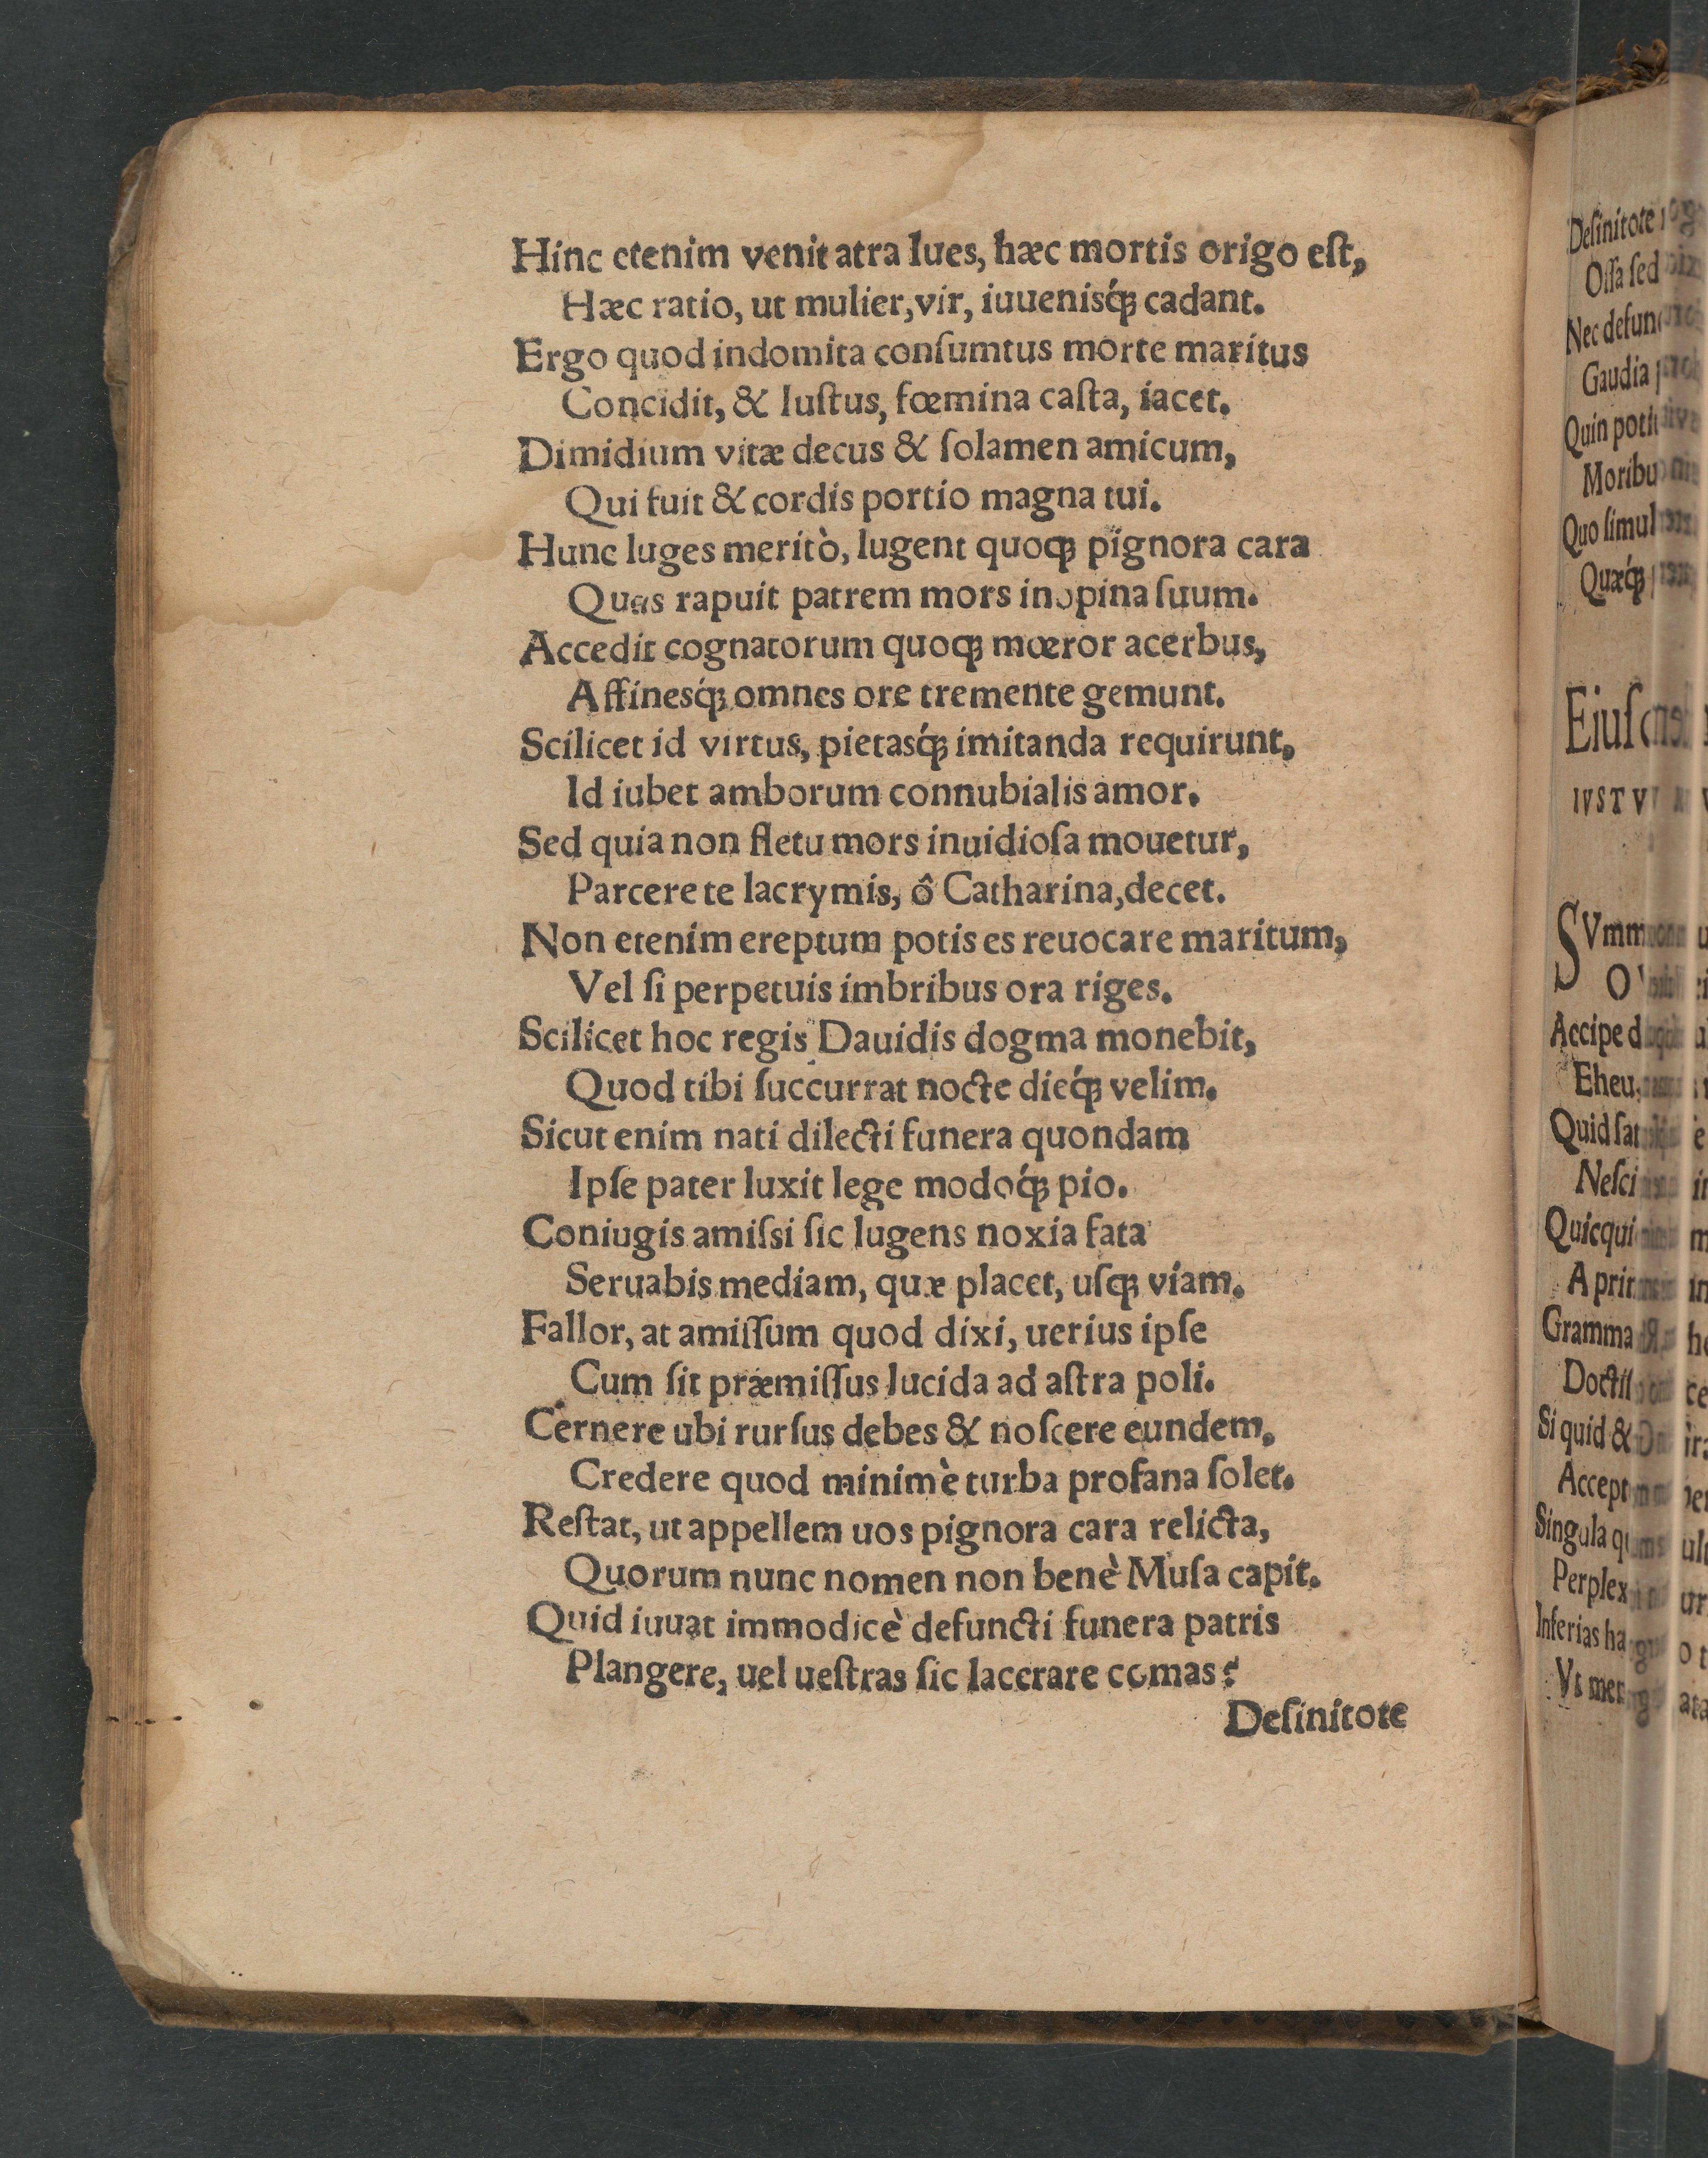 Hinc etenim venit atra lues, hæc mortis origo eſt,
Hæc ratio, ut mulier, vir, iuuenisq́ꝫ cadant.
Ergo quod indomita conſumtus morte maritus
Concidit, & Iuſtus, fœmina caſta, iacet.
Dimidium vitæ decus & ſolamen amicum,
Qui fuit & cordis portio magna tui.
Hunc luges meritò, lugent quoqꝫ pignora cara
Quas rapuit patrem mors inopina ſuum.
Accedit cognatorum quoqꝫ mœror acerbus,
Affinesq́ꝫ omnes ore tremente gemunt.
Scilicet id virtus, pietasq́ꝫ imitanda requirunt,
Id iubet amborum connubialis amor.
Sed quia non fletu mors inuidioſa mouetur,
Parcere te lacrymis, ô Catharina, decet.
Non etenim ereptum potis es reuocare maritum,
Vel ſi perpetuis imbribus ora riges.
Scilicet hoc regis Dauidis dogma monebit,
Quod tibi ſuccurrat nocte dieq́ꝫ velim.
Sicut enim nati dilecti funera quondam
Ipſe pater luxit lege modoq́ꝫ pio.
Coniugis amiſsi ſic lugens noxia fata
Seruabis mediam, quæ placet, uſqꝫ viam.
Fallor, at amiſſum quod dixi, uerius ipſe
Cum ſit præmiſſus lucida ad aſtra poli.
Cernere ubi rurſus debes & noſcere eundem,
Credere quod minimè turba profana ſolet.
Reſtat, ut appellem uos pignora cara relicta,
Quorum nunc nomen non benè Muſa capit.
Quid iuuat immodicè defuncti funera patris
Plangere, uel ueſtras ſic lacerare comas?
Deſinitote
Deſinitote
Oſſa ſed
Nec
Gaudia
Quin
Quo ſimul
Quæq́ꝫ
Accipe
Eheu,
Quid
Si quid &
Singula
Inferias